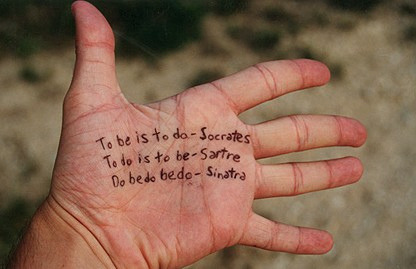 To be is to do - Socrates
To do is to be - Sartre
Do be do be do - Sinatra